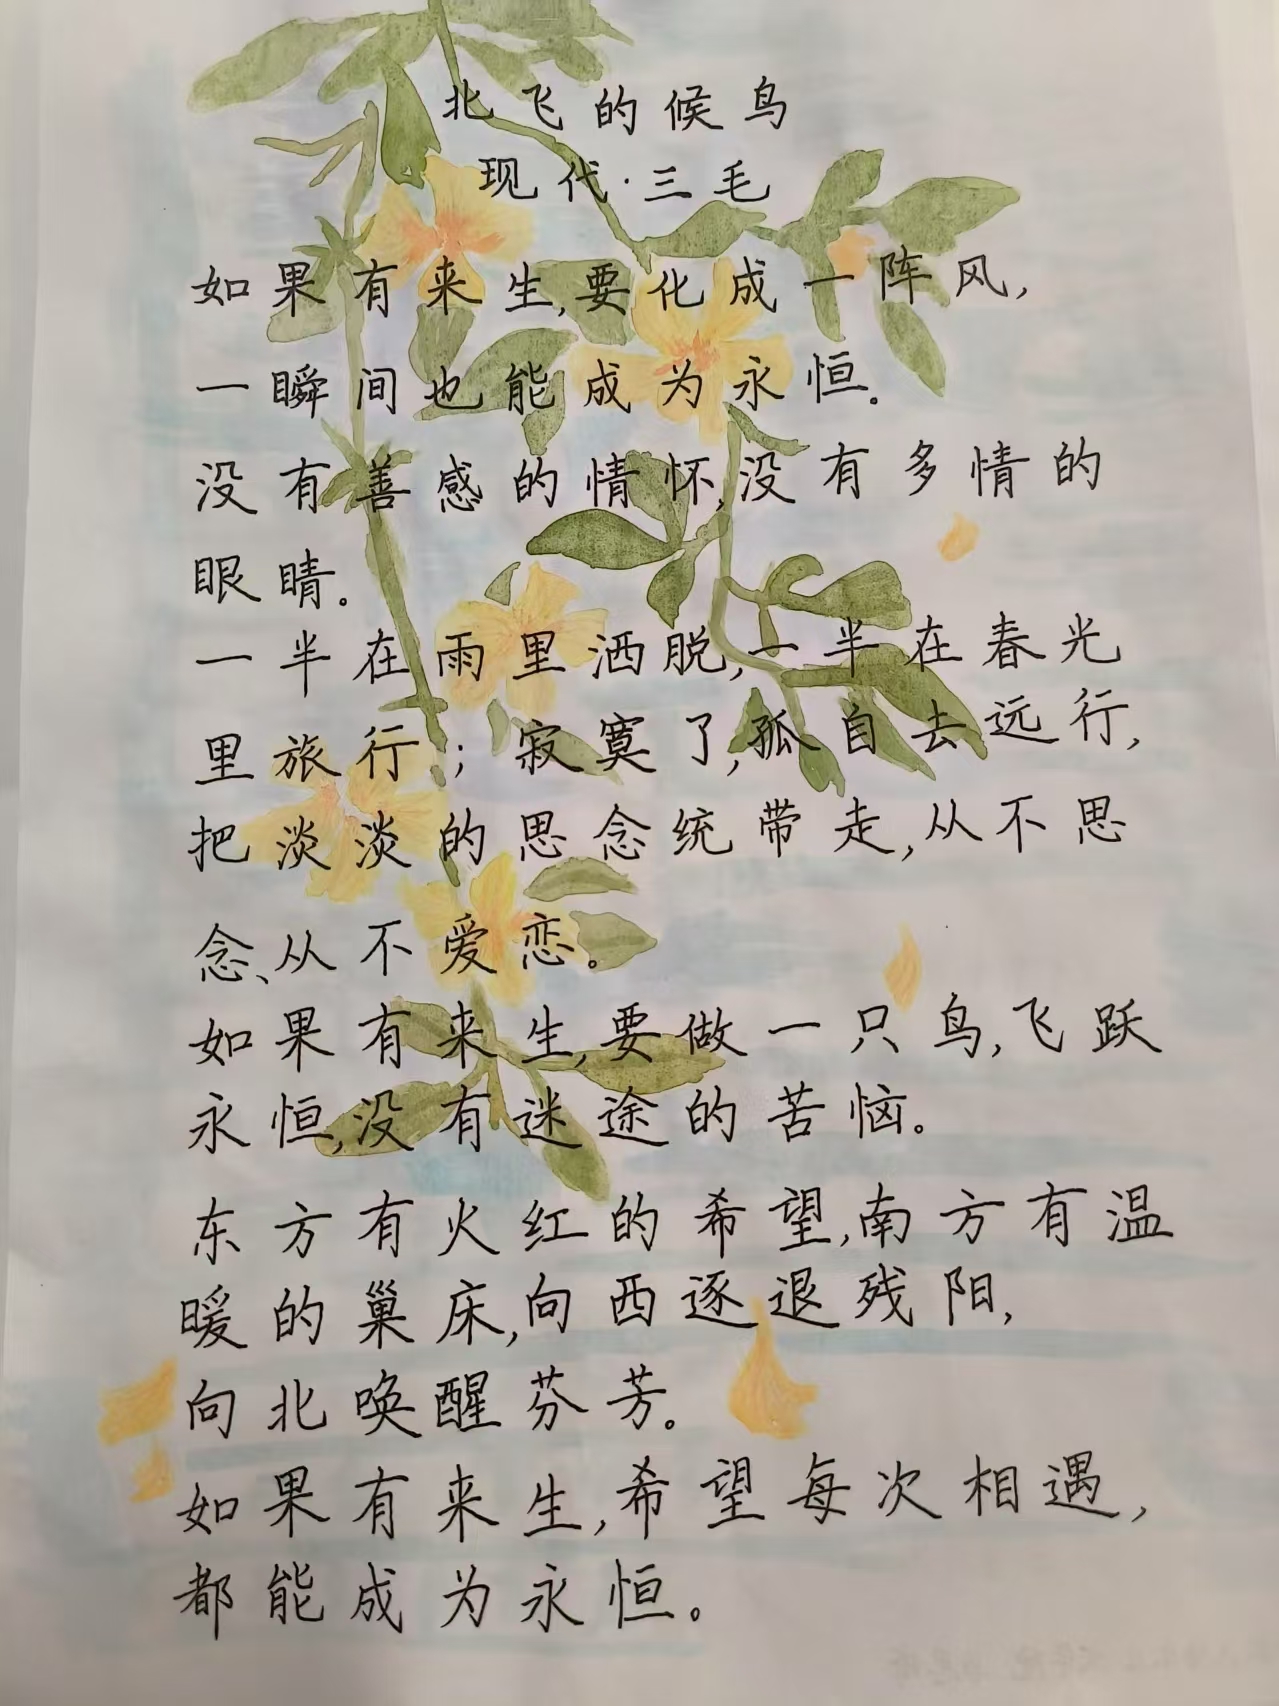 北飞的候鸟
现代·三毛
如果有来生,要化成一阵风,
一瞬间也能成为永恒。
没有善感的情怀,没有多情的
眼睛。
一半在雨里洒脱,一半在春光
里旅行；寂寞了,孤自去远行,
把淡淡的思念统带走,从不思
念、从不爱恋。
如果有来生,要做一只鸟,飞跃
永恒,没有迷途的苦恼。
东方有火红的希望,南方有温
暖的巢床,向西逐退残阳,
向北唤醒芬芳。
如果有来生,希望每次相遇,
都能成为永恒。